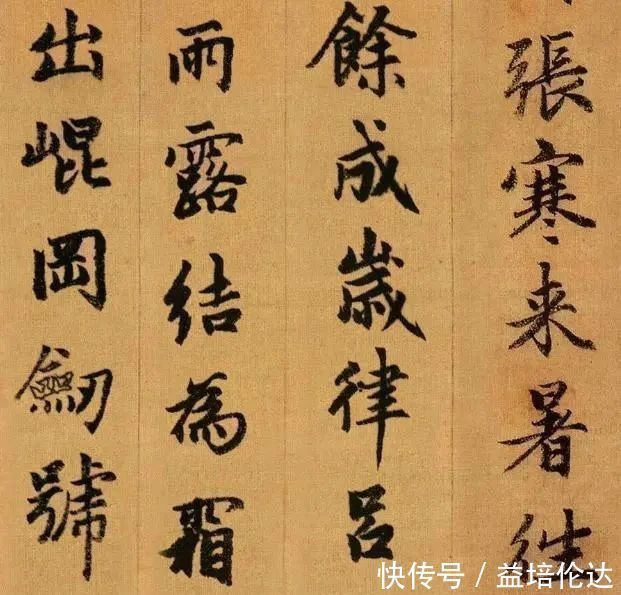 張寒来暑往
餘成歲律呂
雨露結為霜
出崐岡劒號
快传号 / 益培伦达